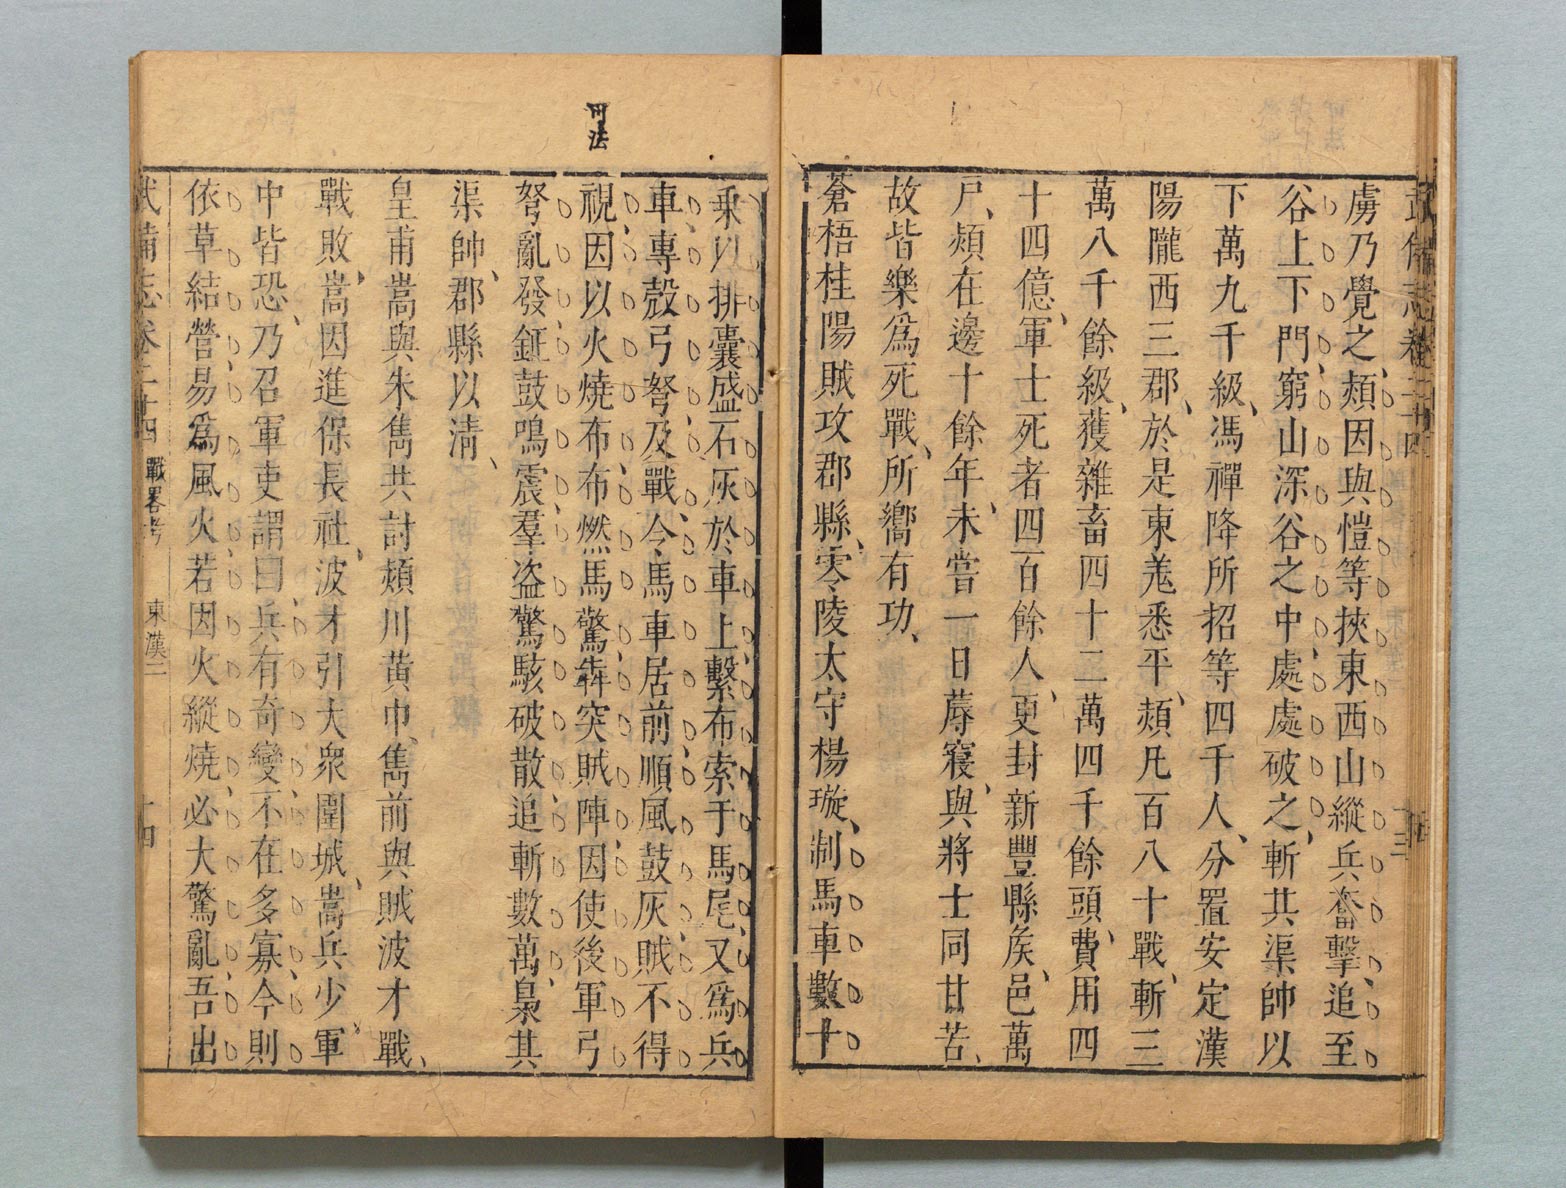 武備志卷二十四
十三
虜乃覺之、熲因與愷等挾東西山縱兵奮擊、追至
谷上下門、窮山深谷之中、處處破之、斬其渠帥以
下萬九千級、馮禪降所招等四千人、分置安定漢
陽隴西三郡、於是東羌悉平、熲凡百八十戰、斬三
萬八千餘級、獲雜畜四十二萬四千餘頭、費用四
十四億、軍士死者四百餘人、更封新豐縣矦、邑萬
戶、熲在邊十餘年、未嘗一日蓐寢、與將士同甘苦、
故皆樂爲死戰、所嚮有功、
蒼梧桂陽賊攻郡縣、零陵太守楊璇、制馬車數十
可法
乗以排囊盛石灰於車上、繫布索于馬尾、又爲兵
車、專彀弓弩、及戰、令馬車居前、順風鼓灰、賊不得
視、因以火燒布、布燃馬驚、犇突賊陣、因使後軍弓
弩亂發、鉦鼓鳴震、羣盜驚駭破散、追斬數萬、梟其
渠帥、郡縣以淸、
皇甫嵩與朱雋共討熲川黄巾、雋前與賊波才戰、
戰敗、嵩因進保長社、波才引大衆圍城、嵩兵少、軍
中皆恐、乃召軍吏謂曰、兵有奇變、不在多寡、今則
依草結營、易爲風火、若因火縱燒、必大驚亂、吾出
武備志卷二十四 戰畧考 東漢二 十四